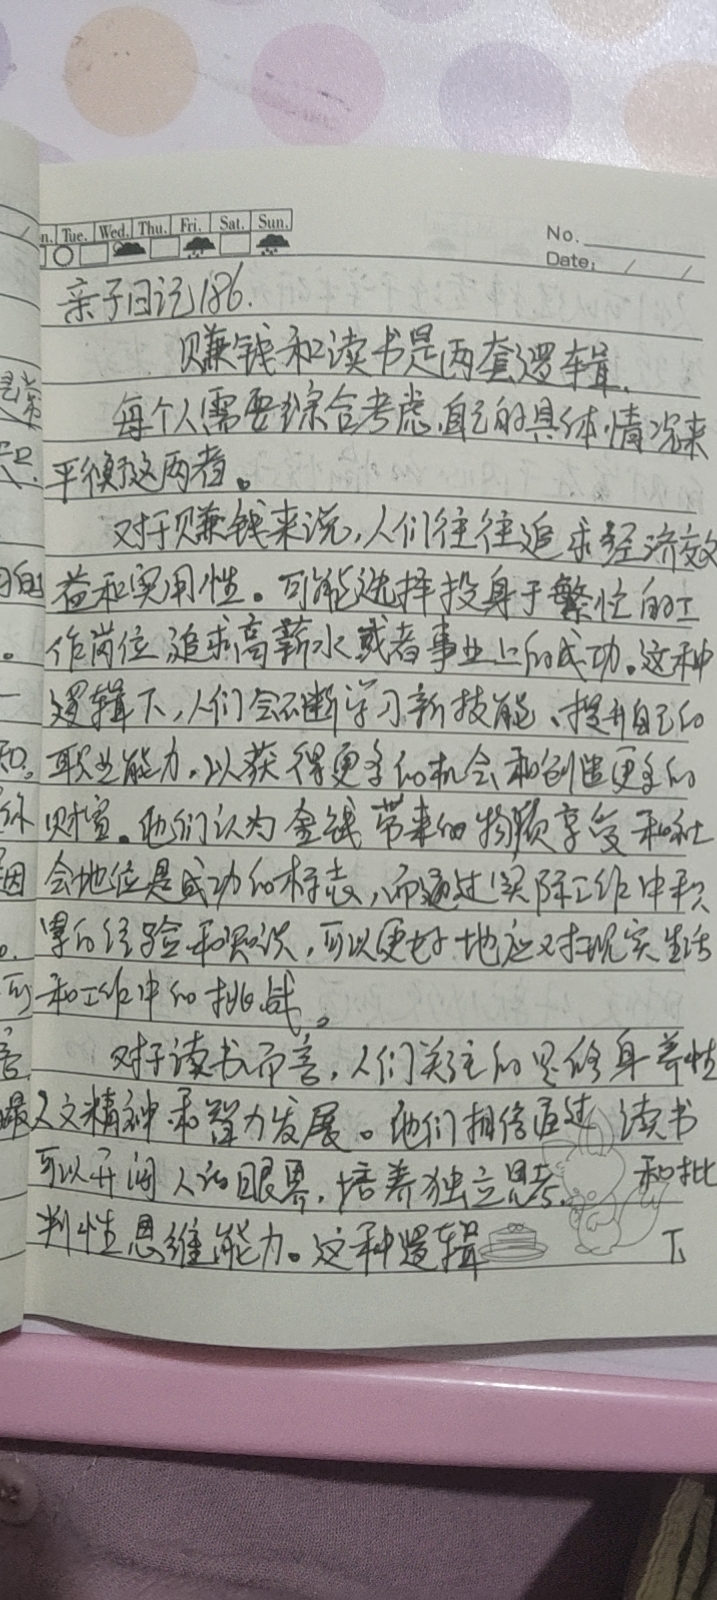 n. Tue. Wed. Thu. Fri. Sat. Sun.
No.
Date: / /
亲子日记186.
赚钱和读书是两套逻辑.
每个人需要综合考虑自己的具体情况来
平衡这两者。
对于赚钱来说,人们往往追求经济效
益和实用性。可能选择投身于繁忙的工
作岗位,追求高薪水或者事业上的成功。这种
逻辑下,人们会不断学习新技能、提升自己的
职业能力,以获得更多的机会和创造更多的
财富。他们认为金钱带来的物质享受和社
会地位是成功的标志,而通过实际工作中积
累的经验和知识,可以更好地应对现实生活
和工作中的挑战。
对于读书而言,人们关注的是修身养性
人文精神和智力发展。他们相信通过读书
可以开阔人的眼界,培养独立思考 和批
判性思维能力。这种逻辑 下